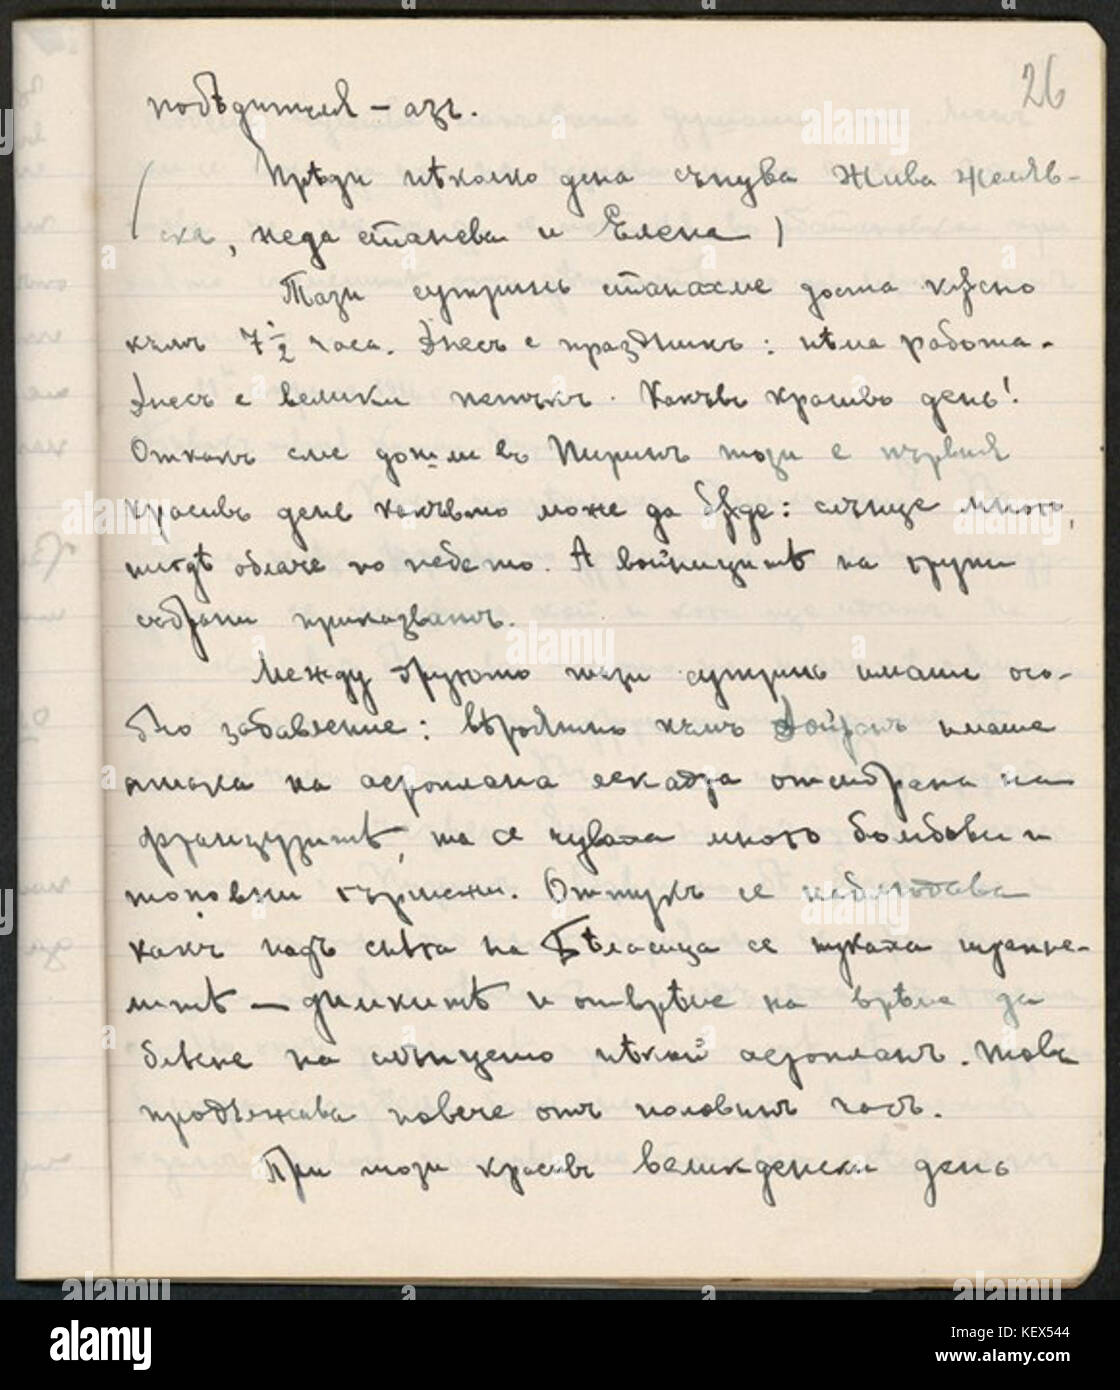 26
побѣдителя – азъ.
(Прѣди нѣколко дена сънува Жива Желяв-
ска, Неда Станева и Елена)
Тази сутринь станахме доста кѫсно
къмъ 7 1/2 часа. Днесъ е праздникъ: нѣма работа.
Днесъ е велики петъкъ. Какъвъ красивъ день!
Откакъ сме дошли въ Пиринъ този е първия
красивъ день какъвто може да бѫде: слънце много,
нигдѣ облаче по небето. А войницитѣ на групи
събрани приказватъ.
Между другото тази сутринь имаше осо-
бно забавление: вѣроятно къмъ Дойранъ имаше
атака на аеропланна ескадра отъ страна на
французитѣ, та се чуваха много бомбови и
топовни гърмежи. Оттукъ се наблюдава
какъ надъ снѣга на Бѣласица се пукаха шрапне-
литѣ – димкитѣ и отврѣме на врѣме да
блѣсне на слънцето нѣкой аеропланъ. Това
продължава повече отъ половинъ часъ.
При този красивъ великденски день
alamy
KEX544
www.alamy.com